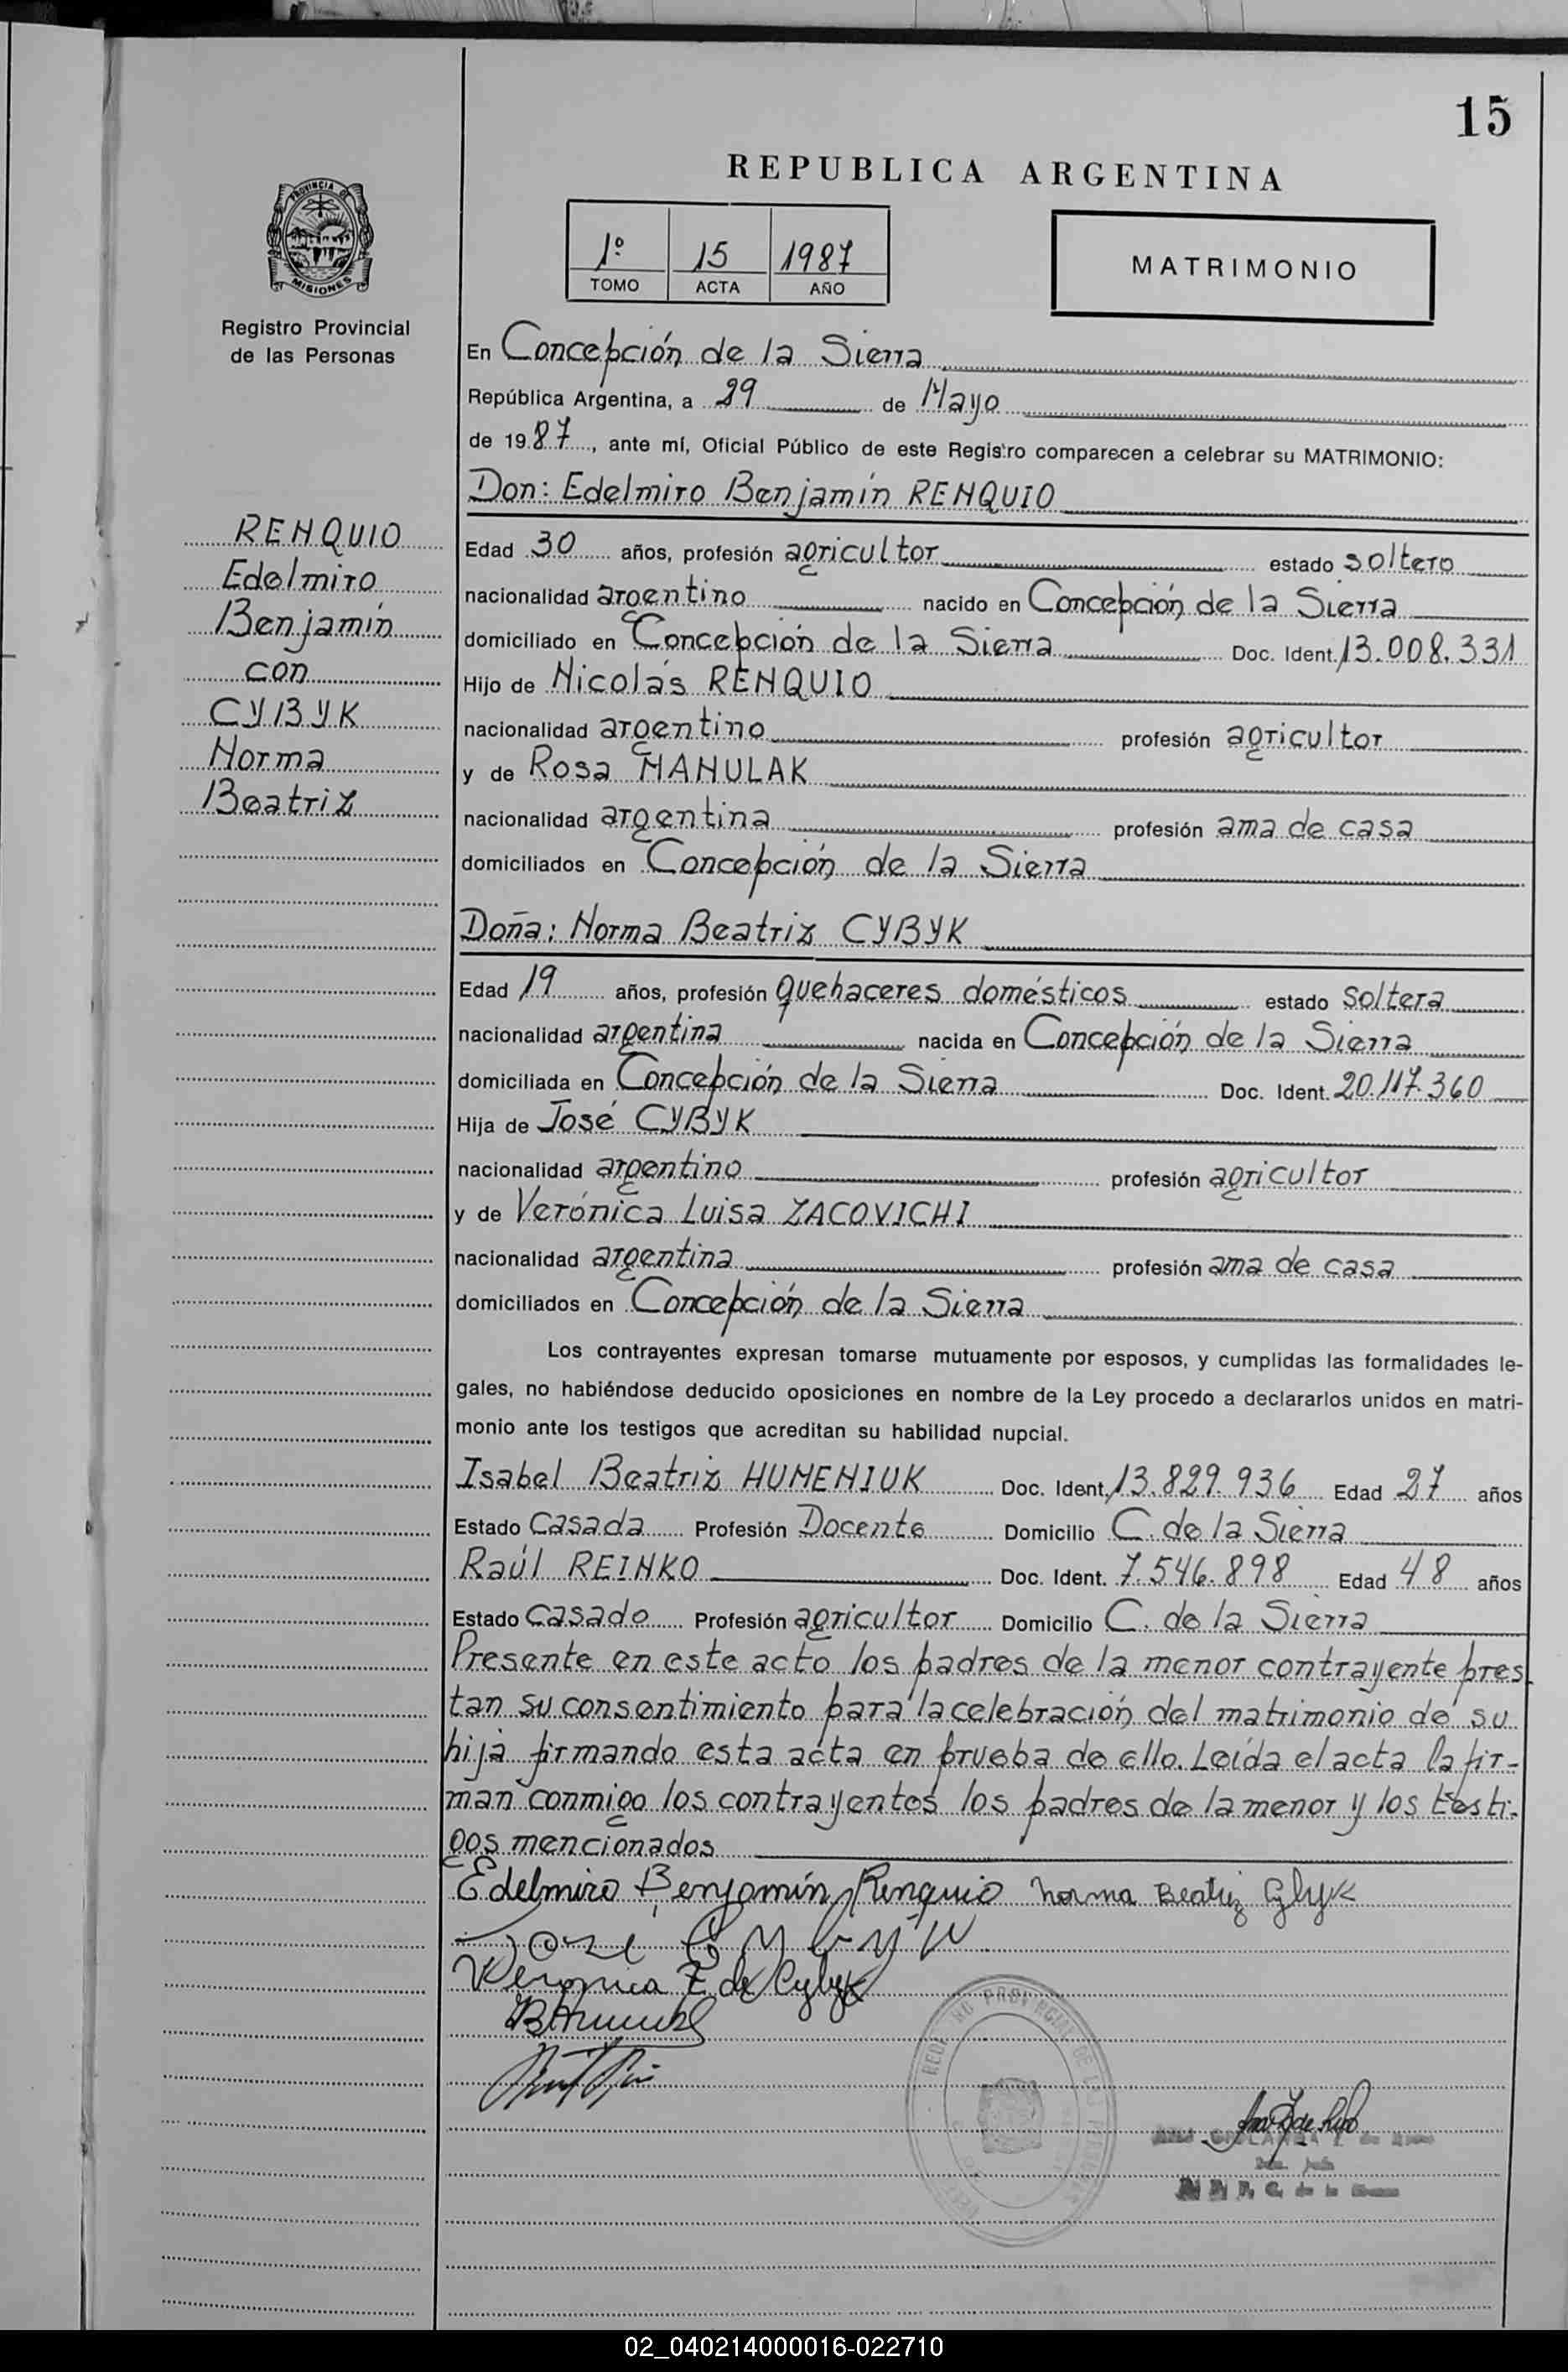 15
REPUBLICA ARGENTINA
PROVINCIA DE
MISIONES
Registro Provincial
de las Personas
1º 15 1987
TOMO ACTA AÑO
MATRIMONIO
En Concepción de la Sierra
República Argentina, a 29 de Mayo
de 1987, ante mí, Oficial Público de este Registro comparecen a celebrar su MATRIMONIO:
Don: Edelmiro Benjamín RENQUIO
RENQUIO
Edelmiro
Benjamín
con
CYBYK
Norma
Beatriz
Edad 30 años, profesión agricultor estado soltero
nacionalidad argentino nacido en Concepción de la Sierra
domiciliado en Concepción de la Sierra Doc. Ident. 13.008.331
Hijo de Nicolás RENQUIO
nacionalidad argentino profesión agricultor
y de Rosa HANULAK
nacionalidad argentina profesión ama de casa
domiciliados en Concepción de la Sierra
Doña: Norma Beatriz CYBYK
Edad 19 años, profesión quehaceres domésticos estado soltera
nacionalidad argentina nacida en Concepción de la Sierra
domiciliada en Concepción de la Sierra Doc. Ident. 20.117.360
Hija de José CYBYK
nacionalidad argentino profesión agricultor
y de Verónica Luisa ZACOVICHI
nacionalidad argentina profesión ama de casa
domiciliados en Concepción de la Sierra
Los contrayentes expresan tomarse mutuamente por esposos, y cumplidas las formalidades le-
gales, no habiéndose deducido oposiciones en nombre de la Ley procedo a declararlos unidos en matri-
monio ante los testigos que acreditan su habilidad nupcial.
Isabel Beatriz HUMENIUK Doc. Ident. 13.829.936 Edad 27 años
Estado Casada Profesión Docente Domicilio C. de la Sierra
Raúl REINKO Doc. Ident. 7.546.898 Edad 48 años
Estado Casado Profesión agricultor Domicilio C. de la Sierra
Presente en este acto los padres de la menor contrayente pres-
tan su consentimiento para la celebración del matrimonio de su
hija firmando esta acta en prueba de ello. Leída el acta la fir-
man conmigo los contrayentes los padres de la menor y los testi-
gos mencionados
Edelmiro Benjamín Renquio Norma Beatriz Cybyk
José Cybyk
Veronica Z. de Cybyk
02_040214000016-022710